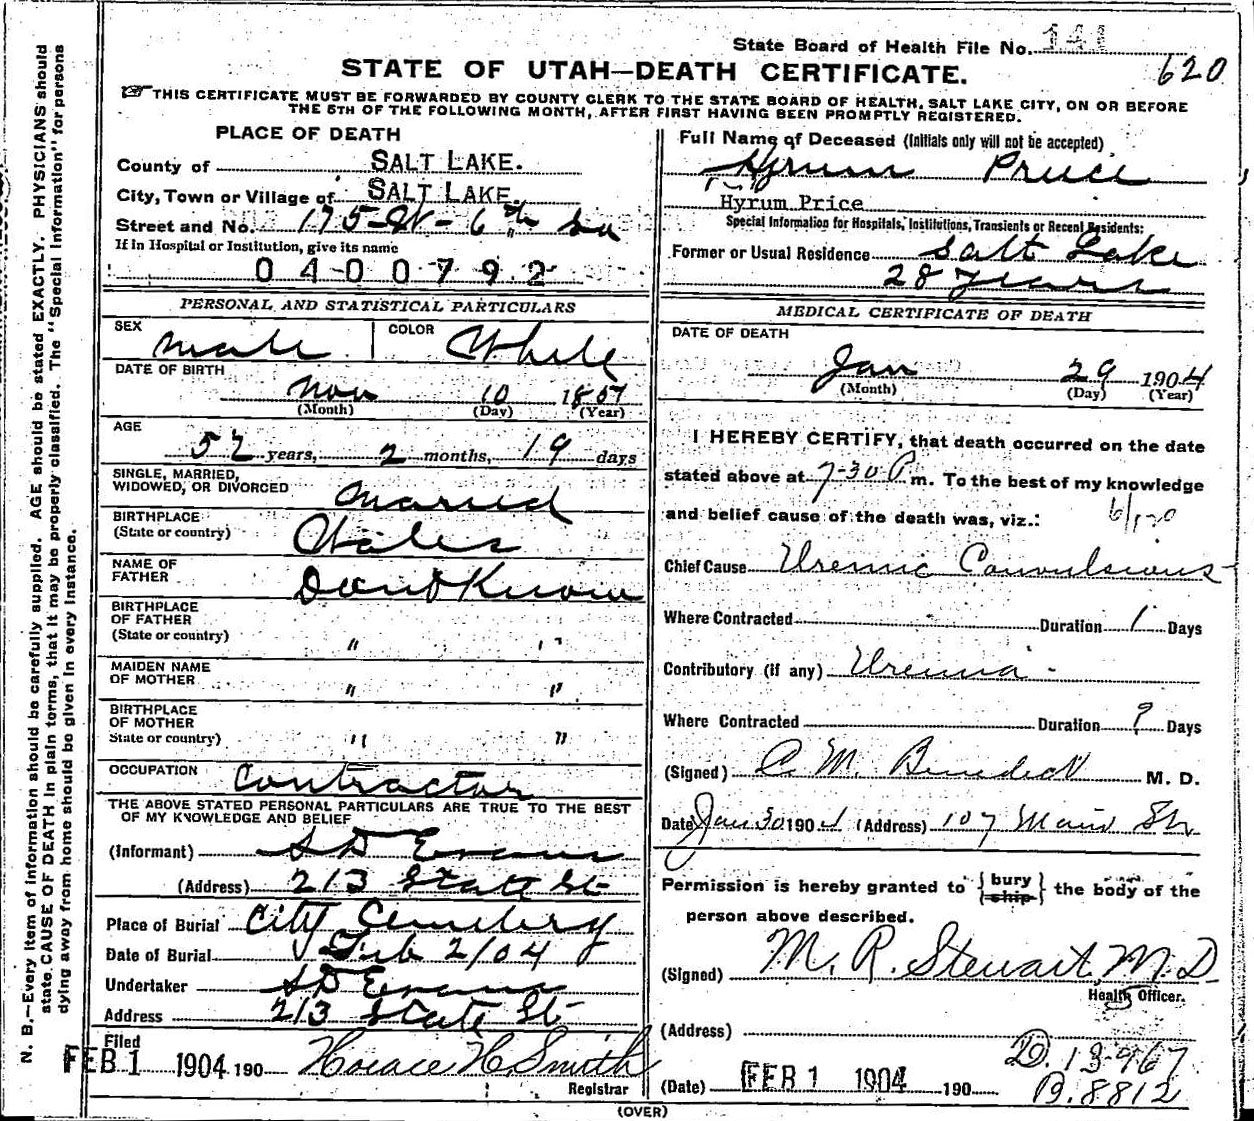 State Board of Health File No. 141
620
STATE OF UTAH—DEATH CERTIFICATE.
THIS CERTIFICATE MUST BE FORWARDED BY COUNTY CLERK TO THE STATE BOARD OF HEALTH, SALT LAKE CITY, ON OR BEFORE
THE 5TH OF THE FOLLOWING MONTH, AFTER FIRST HAVING BEEN PROMPTLY REGISTERED.
PLACE OF DEATH
County of SALT LAKE.
City, Town or Village of SALT LAKE.
Street and No. 175 W - 6th So
If in Hospital or Institution, give its name
0400792
PERSONAL AND STATISTICAL PARTICULARS
SEX male COLOR White
DATE OF BIRTH
Nov 10
(Month) (Day) (Year)
AGE
52 years, 2 months, 19 days
SINGLE, MARRIED,
WIDOWED, OR DIVORCED married
BIRTHPLACE
(State or country) Wales
NAME OF
FATHER Dont Know
BIRTHPLACE
OF FATHER
(State or country) " "
MAIDEN NAME
OF MOTHER " "
BIRTHPLACE
OF MOTHER
State or country) " "
OCCUPATION Contractor
THE ABOVE STATED PERSONAL PARTICULARS ARE TRUE TO THE BEST
OF MY KNOWLEDGE AND BELIEF
(Informant) S D Evans
(Address) 213 State St
Place of Burial City Cemetery
Date of Burial Feb 2/04
Undertaker S D Evans
Address 213 State St
Filed
FEB 1 1904 190 Horace H. Smith
Registrar
Full Name of Deceased (Initials only will not be accepted)
Hyrum Price
Hyrum Price
Special Information for Hospitals, Institutions, Transients or Recent Residents:
Former or Usual Residence Salt Lake
28 Years
MEDICAL CERTIFICATE OF DEATH
DATE OF DEATH
Jan 29 1904
(Month) (Day) (Year)
I HEREBY CERTIFY, that death occurred on the date
stated above at 7-30 P m. To the best of my knowledge
and belief cause of the death was, viz.:
Chief Cause Uremic Convulsions
Where Contracted Duration 1 Days
Contributory (if any) Uremia
Where Contracted Duration ? Days
(Signed) C. M. Benedict M. D.
Date Jan 30 1904 (Address) 107 Main St
Permission is hereby granted to {bury
ship} the body of the
person above described.
(Signed) M. R. Stewart, M. D
Health Officer.
(Address)
(Date) FEB 1 1904 190
D. 13967
B. 8812
(OVER)
N. B.—Every item of information should be carefully supplied. AGE should be stated EXACTLY. PHYSICIANS should
state CAUSE OF DEATH in plain terms, that it may be properly classified. The "Special Information" for persons
dying away from home should be given in every instance.